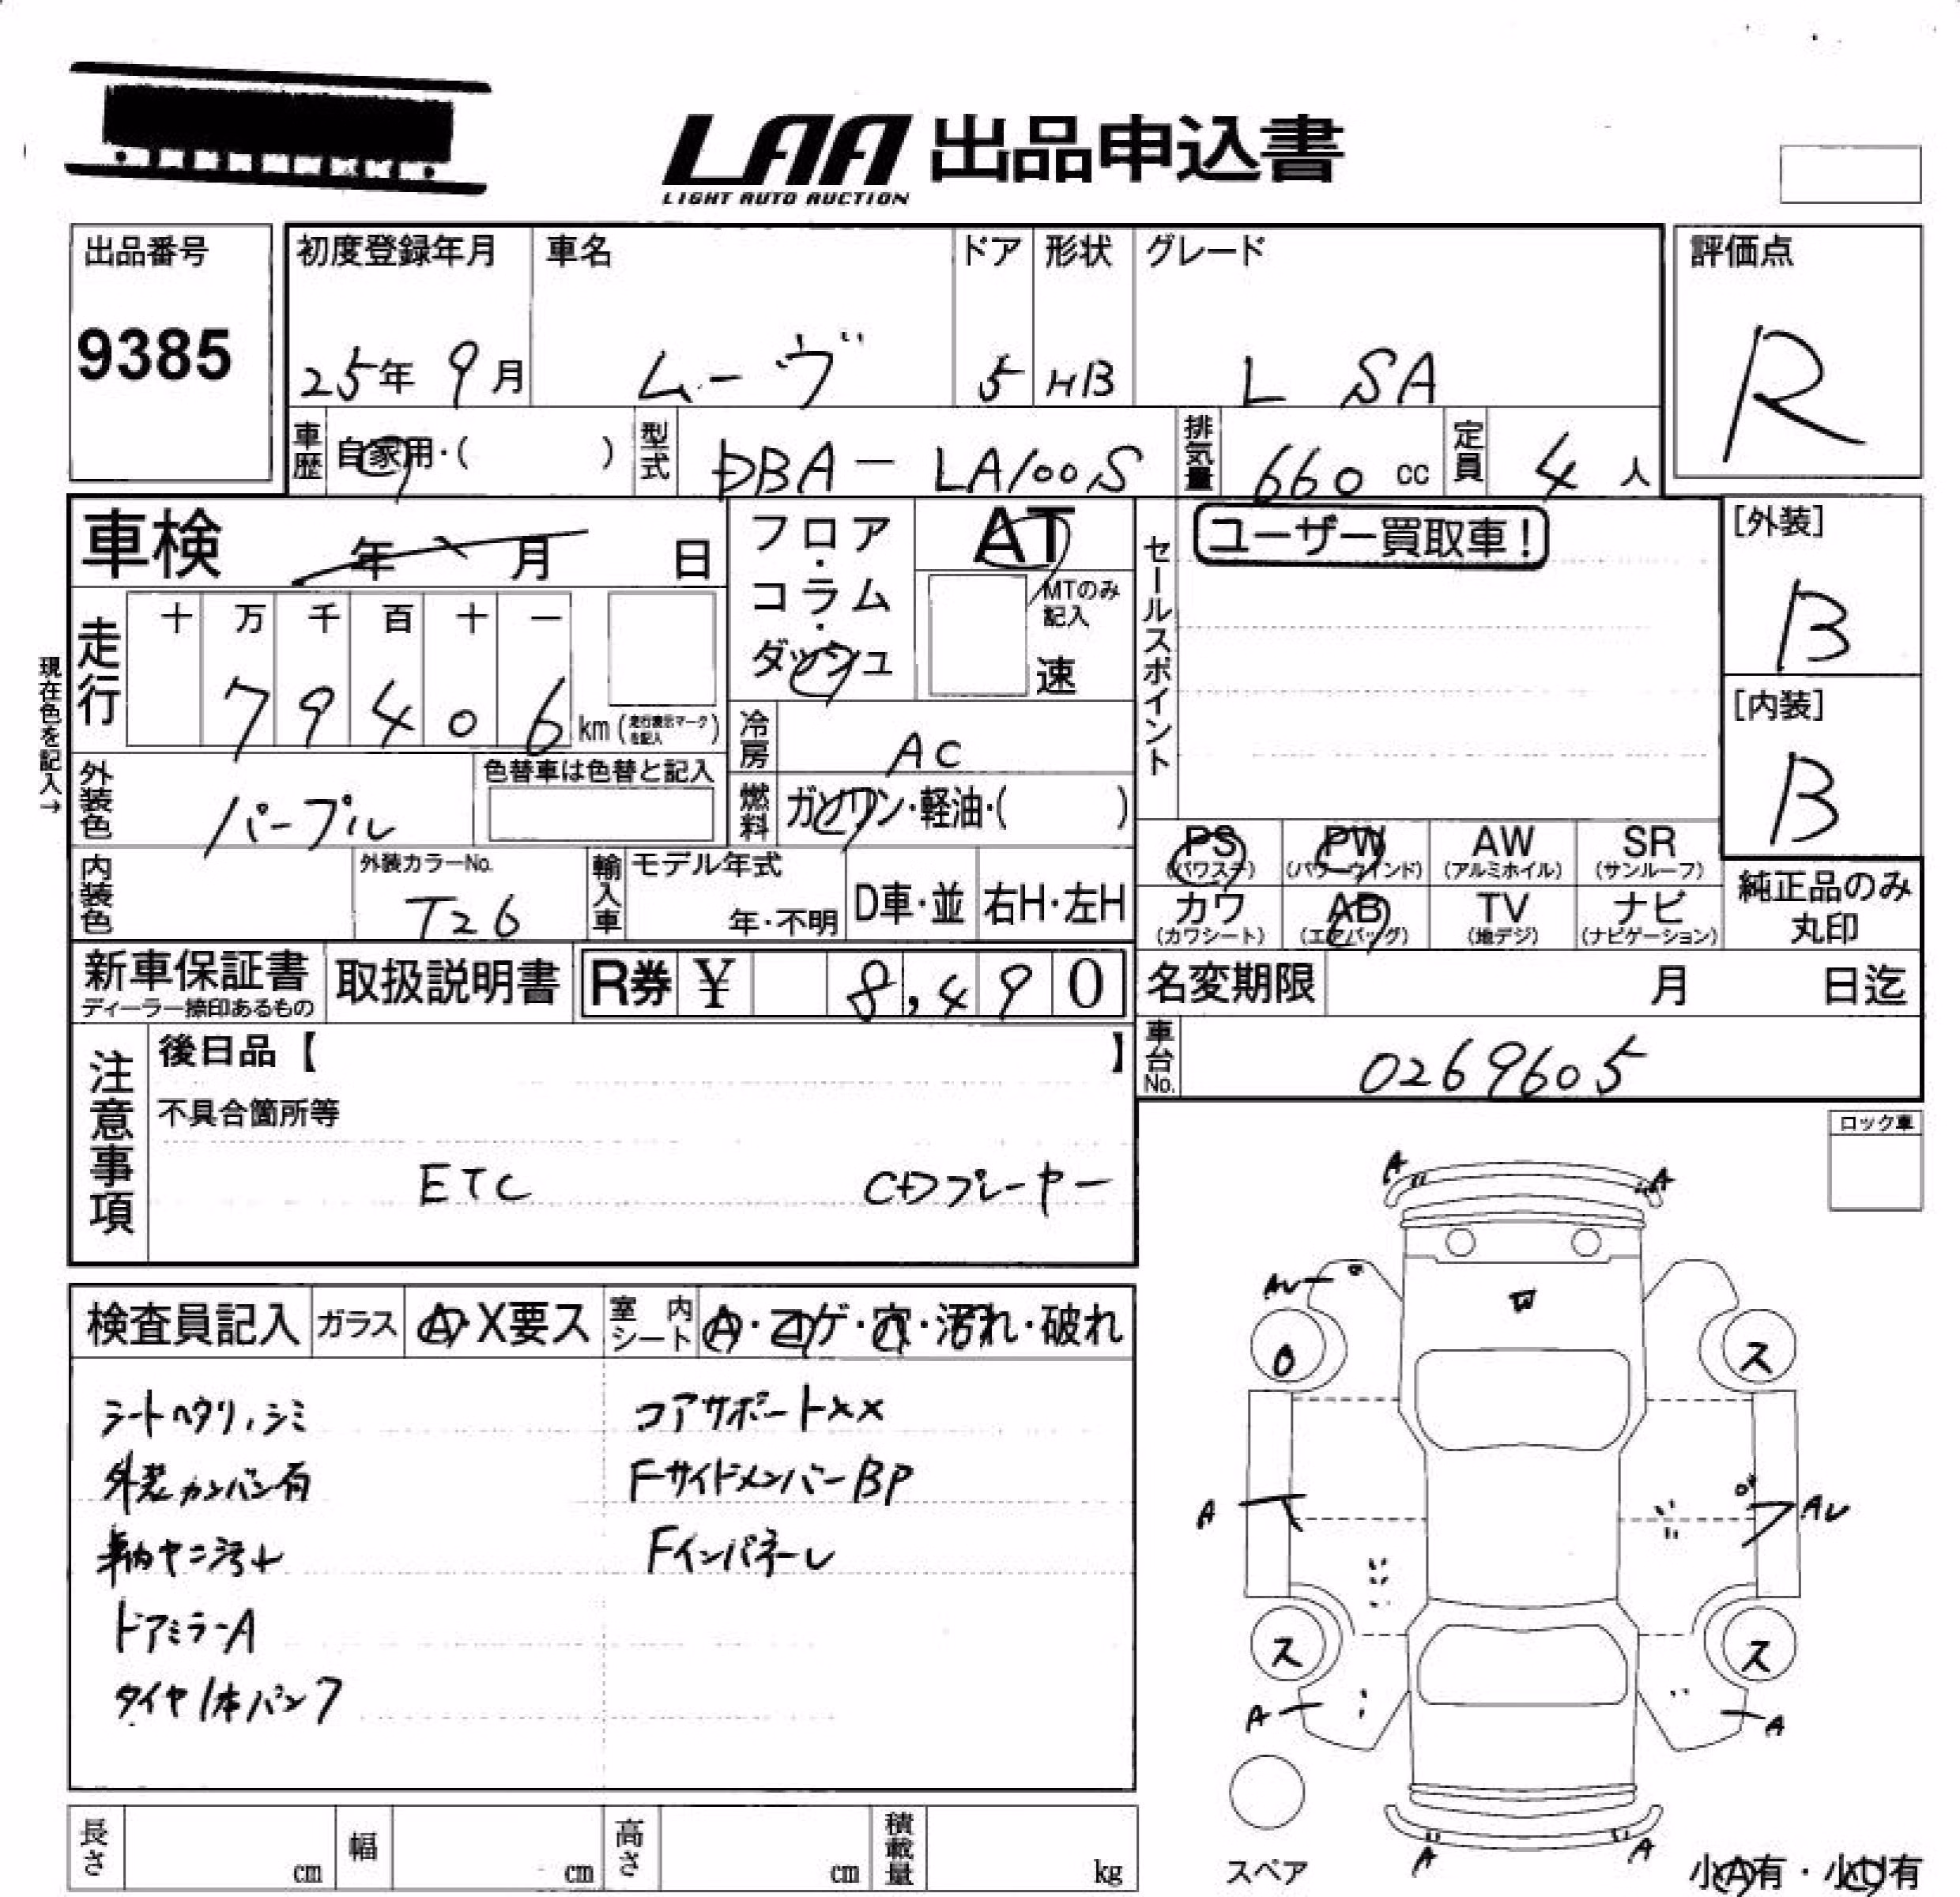 LAA 出品申込書
LIGHT AUTO AUCTION
出品番号
9385
初度登録年月
25年 9月
車名
ムーヴ
ドア
5
形状
HB
グレード
L SA
評価点
R
車歴
自家用・( )
型式
DBA－LA100S
排気量
660 cc
定員
4 人
車検
年 月 日
フロア・コラム・ダッシュ
AT
MTのみ記入
速
セールスポイント
ユーザー買取車！
[外装]
B
[内装]
B
現在色を記入→
走行
十 万 千 百 十 一
7 9 4 0 6 km (走行表示マークを記入)
冷房
AC
外装色
パープル
色替車は色替と記入
燃料
ガソリン・軽油・( )
内装色
外装カラーNo.
T26
輸入車
モデル年式
年・不明
D車・並
右H・左H
PS (パワステ)
PW (パワーウインド)
AW (アルミホイル)
SR (サンルーフ)
カワ (カワシート)
AB (エアバッグ)
TV (地デジ)
ナビ (ナビゲーション)
純正品のみ
丸印
新車保証書
ディーラー捺印あるもの
取扱説明書
R券 ¥ 8,490
名変期限
月 日迄
車台No.
0269605
注意事項
後日品【 】
不具合箇所等
ETC CDプレーヤー
ロック車
検査員記入
ガラス
A・X要ス
室内シート
A・コゲ・穴・汚れ・破れ
シートヘタリ、シミ
コアサポートXX
外装カンバン有
FサイドメンバーBP
車内ヤニ汚れ
Fインパネーレ
ドアミラーA
タイヤ1本パンク
A
A
AU
W
ス
A
AU
ス
ス
A
A
スペア
A
A
小A有・小U有
長さ cm
幅 cm
高さ cm
積載量 kg